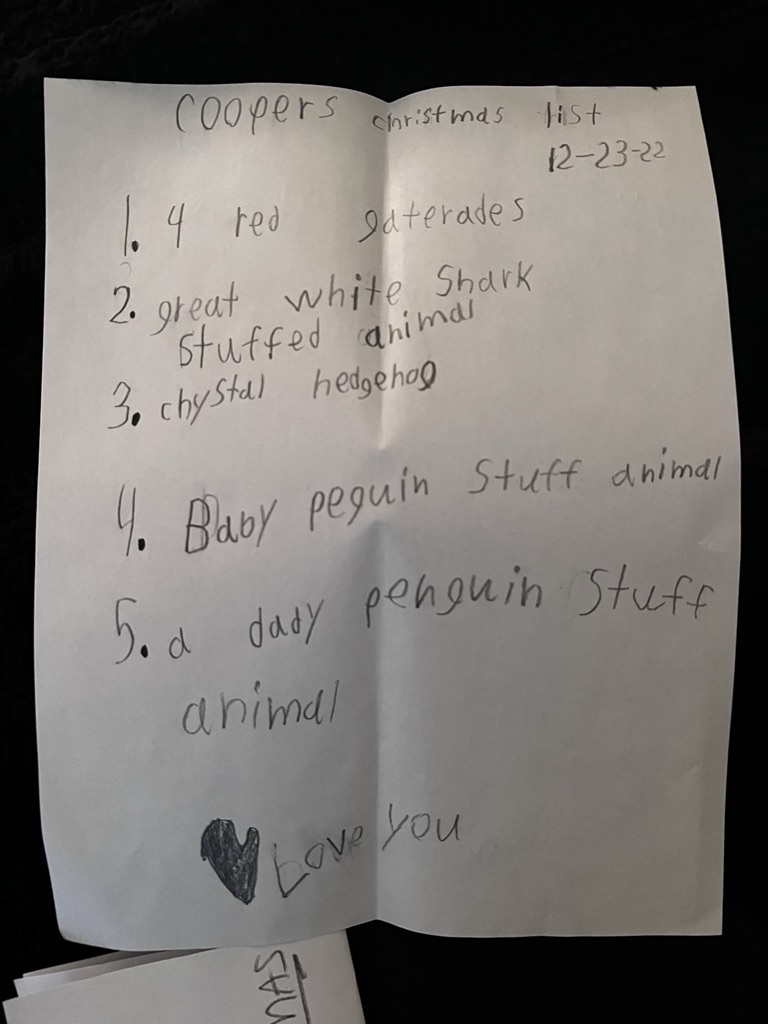 Coopers christmas list
12-23-22
1. 4 red gaterades
2. great white Shark
stuffed animal
3. chystal hedgehog
4. Baby peguin Stuff animal
5. a dady penguin Stuff
animal
Love you